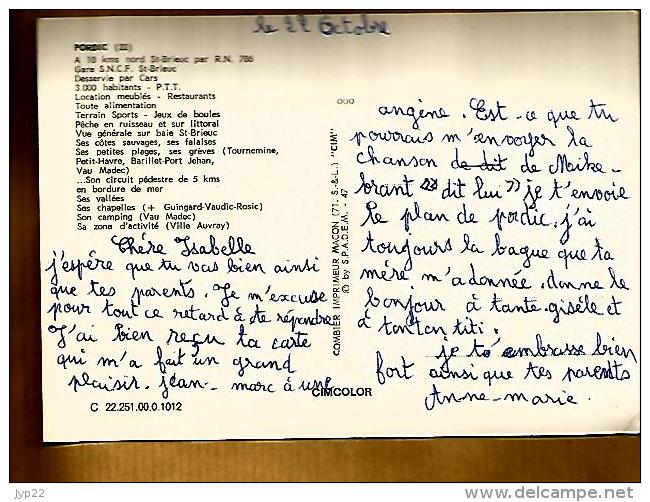 le 22 Octobre
PORDIC (22)
A 10 kms nord St-Brieuc par R.N. 786
Gare S.N.C.F. St-Brieuc
Desservie par Cars
3.000 habitants - P.T.T.
Location meublés - Restaurants
Toute alimentation
Terrain Sports - Jeux de boules
Pêche en ruisseau et sur littoral
Vue générale sur baie St-Brieuc
Ses côtes sauvages, ses falaises
Ses petites plages, ses grèves (Tournemine,
Petit-Havre, Barillet-Port Jehan,
Vau Madec)
...Son circuit pédestre de 5 kms
en bordure de mer
Ses vallées
Ses chapelles (+ Guingard-Vaudic-Rosic)
Son camping (Vau Madec)
Sa zona d'activité (Ville Auvray)
Chère Isabelle
j'espére que tu vas bien ainsi
que tes parents. Je m'excuse
pour tout ce retard à te répondre
J'ai bien reçu ta carte
qui m'a fait un grand
plaisir. jean-marc à une
C 22.251.00.0.1012
COMBIER IMPRIMEUR MACON (71. S.-&-L.) "CIM"
© by S.P.A.D.E.M. - 47
CIMCOLOR
angine. Est-ce que tu
pourrais m'envoyer la
chanson de dit de Maike
brant "dit lui" je t'envoie
le plan de pordic. j'ai
toujours la bague que ta
mére m'a donnée. donne le
bonjour à tante gisèle et
à tonton titi.
je t'embrasse bien
fort ainsi que tes parents
Anne-marie.
jyp22
www.delcampe.net